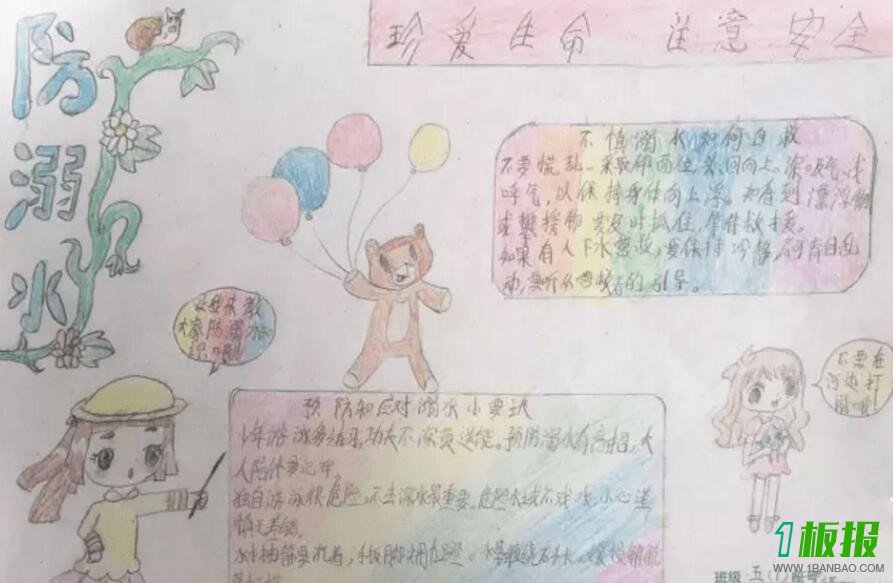 防溺水
珍爱生命 注意安全
不慎溺水如何自救
不要慌乱。采取仰面位,头向上。深吸气,浅
呼气,以保持身体向上浮。如看到漂浮物
或攀援物要及时抓住,等待救援。
如果有人下水营救,要保持冷静,不可盲目乱
动,要听从营救者的引导。
让我来教
大家防溺水知
识吧
不要在
河边打
闹哦
预防和应对溺水小要诀
少年游泳多练习,功夫不深莫逞能。预防溺水有高招,大
人陪伴要记牢。
独自游泳很危险,不去深水最重要。危险水域不戏水,小心谨
慎无
水中抽筋要沉着,手扳脚拇
班级:五(1)
1板报
WWW.1BANBAO.COM